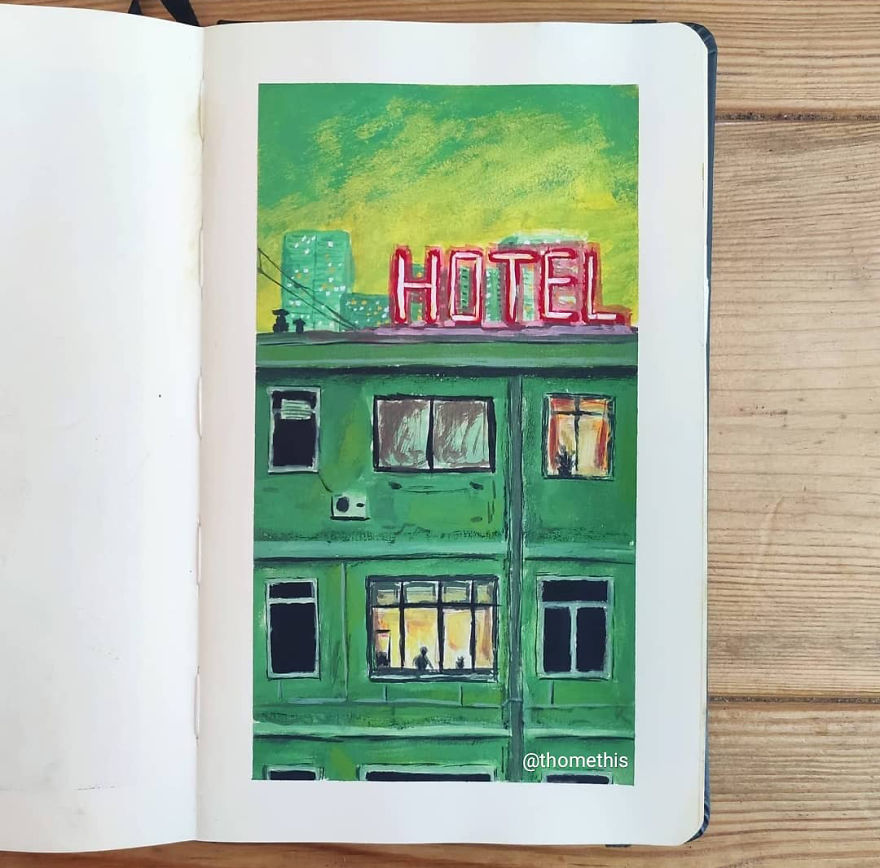 HOTEL
@thomethis